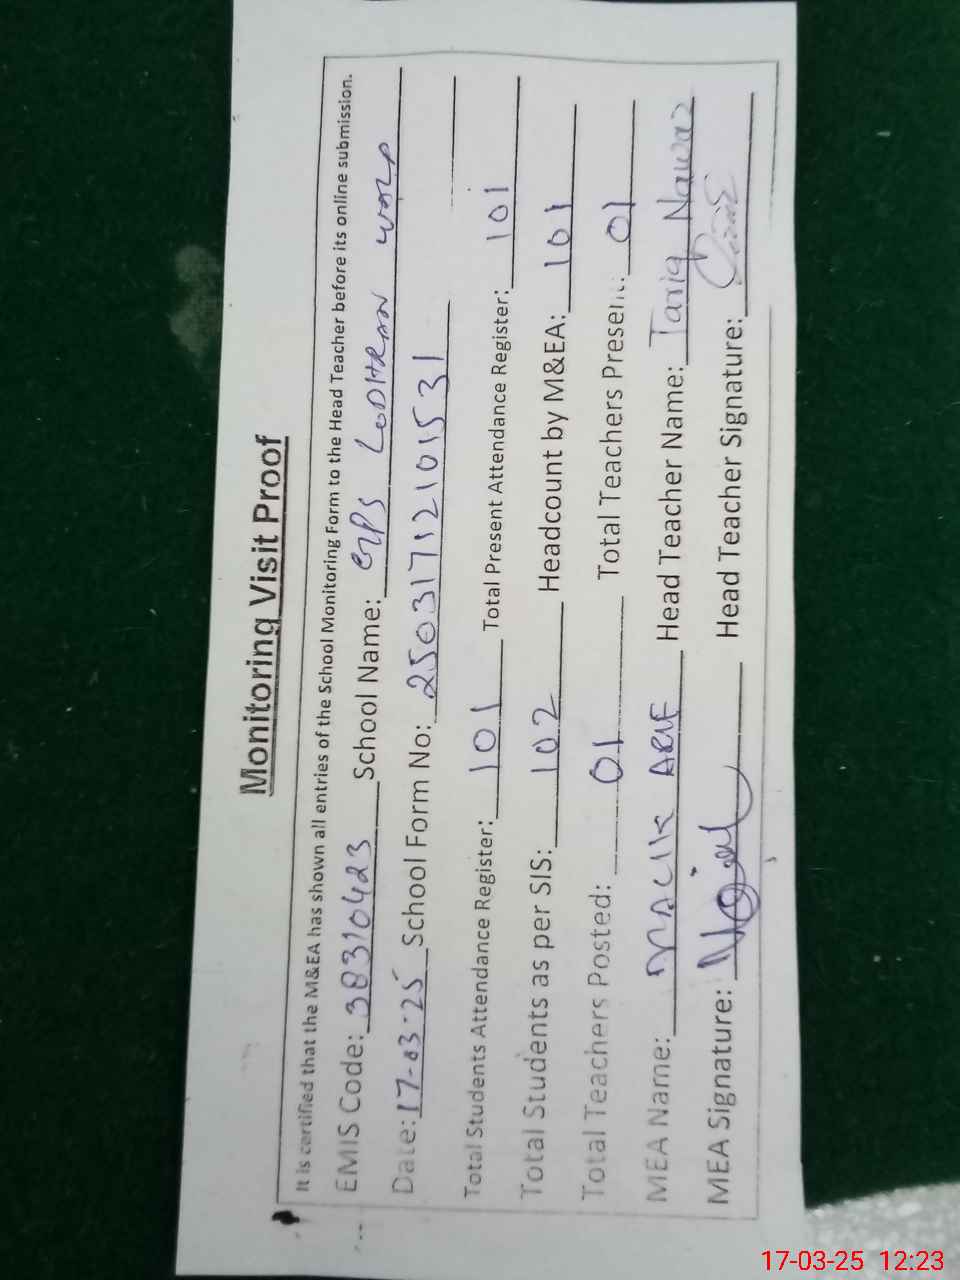 Monitoring Visit Proof
It is certified that the M&EA has shown all entries of the School Monitoring Form to the Head Teacher before its online submission.
EMIS Code: 38310423 School Name: GPS LODHRAN
Date: 17-03-25 School Form No: 25031712101531
Total Students Attendance Register: 101 Total Present Attendance Register: 101
Total Students as per SIS: 102 Headcount by M&EA: 101
Total Teachers Posted: 01 Total Teachers Present: 01
MEA Name: MALIK Head Teacher Name: Tariq Nawaz
MEA Signature: Head Teacher Signature:
17-03-25 12:23